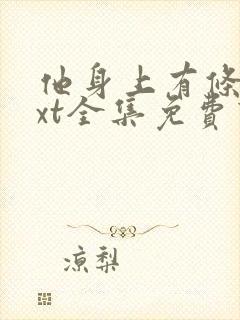 他身上有条
xt全集免费
凉梨